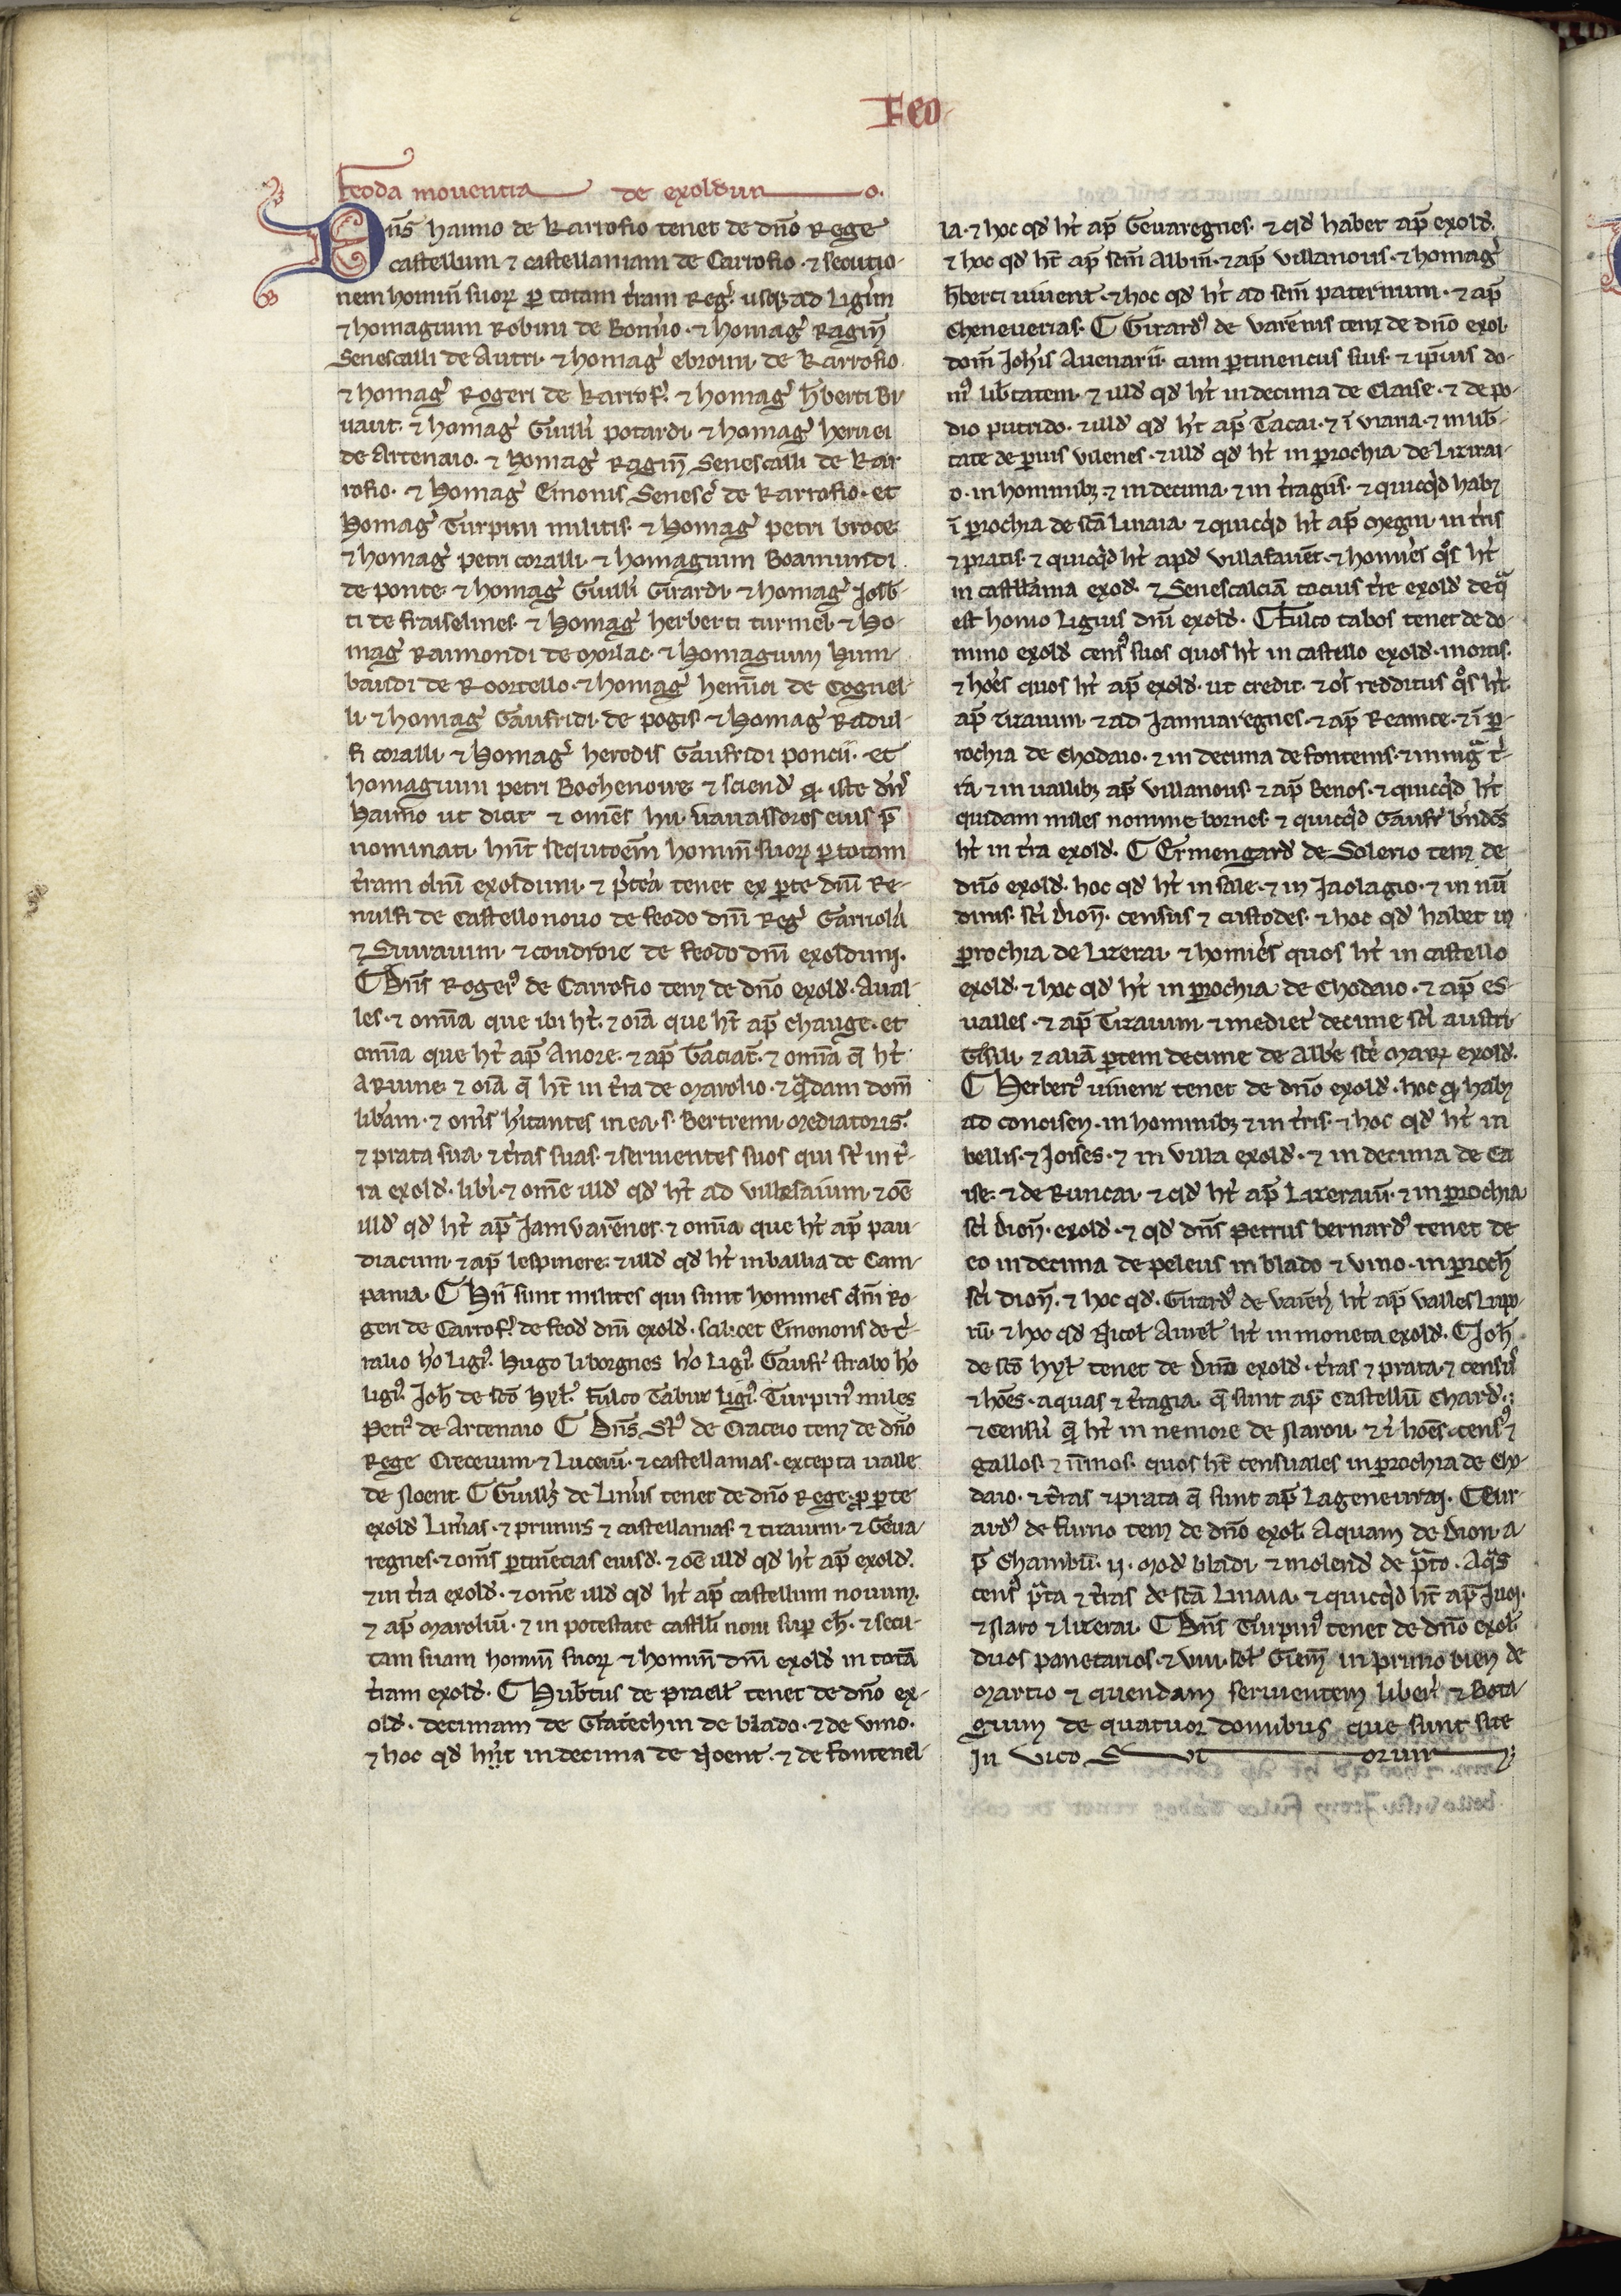 Feo
Feoda mouentia de exoldun o.
Dn̄s haimo de Karrofio tenet de dn̄o Rege
castellum ⁊ castellaniam de Carrofio. ⁊ secutio-
nem hominū suoꝝ ꝑ totam t̄ram Reg̾. usqꝫ ad Lig̾im
⁊ homagium Robini de Bom̾io. ⁊ homag̾ Ragin̄
Senescalli de Autri. ⁊ homag̾ ebroini de Karrofio.
⁊ homag̾ Rogeri de Karrof̾. ⁊ homag̾ h̄berti Bri
uaut. ⁊ homag̾ Guill̾i potardi. ⁊ homag̾ heruei
de Artenaio. ⁊ homag̾ Ragin̄ Senescalli de Kar
rofio. ⁊ homag̾ Eimonis Senesc̾ de Karrofio. et
homag̾ Turpini militis. ⁊ homag̾ petri broce.
⁊ homag̾ petri coralli. ⁊ homagium Boamundi
de ponte. ⁊ homag̾ Guill̾i Girardi. ⁊ homag̾ Josb̄-
ti de fraiselines. ⁊ homag̾ herberti turmel. ⁊ ho-
mag̾ Raimondi de morlac. ⁊ homagium hum-
baudi de Roortello. ⁊ homag̾ hem̄ici de Cognel-
li. ⁊ homag̾ Gaufridi de pogis. ⁊ homag̾ Radul-
fi coralli. ⁊ homag̾ heredis Gaufridi poncii. et
homagium petri Bochenoire. ⁊ sciend̾ ꝙ iste dn̄s
haimo ut dicit ⁊ omēs hii uauassores eius p̄
nominati. hn̄t sequtoēm hominū suoꝝ ꝑ totam
t̄ram dn̄i exolduni. ⁊ p̄tea tenet ex ꝑte dn̄i Re-
nulfi de Castellonouo de feodo dn̄i Reg̾ Garuola
⁊ Siurauum ⁊ coudroie de feodo dn̄i exolduni.
C Dn̄s Roger᷒ de Carrofio tenꝫ de dn̄o exold̾. Aual-
les. ⁊ omīa que ibi h̄t. ⁊ oīa que h̄t ap̄ chauge. et
omīa que h̄t ap̄ Anore. ⁊ ap̄ Gaciac̄. ⁊ omīa q̄ h̄t
a Ruine. ⁊ oīa q̄ h̄t in t̄ra de marolio. ⁊ q̄dam dom̄
lib̄am. ⁊ om̄s h̄itantes in ea. s. Bertrenni mediatoris.
⁊ prata sua. ⁊ t̄ras suas. ⁊ seruientes suos qui st̄ in t̄-
ra exold̾. lib̾i. ⁊ om̄e illd̾ qd̾ h̄t ad villesaium. ⁊ oē
illd̾ qd̾ h̄t ap̄ Jamvarēnes. ⁊ omīa que h̄t ap̄ pau-
diacum. ⁊ ap̄ lespinere. ⁊ illd̾ qd̾ h̄t in ballia de Cam-
pania. C hii sunt milites qui sunt homines dn̄i Ro-
geri de Carrof̾. de feod̾ dn̄i exold̾. scilicet Eimonons de t̄-
raiio h̄o lig᷒. hugo liborgnes h̄o lig᷒. Gaufr̾ strabo h̄o
lig᷒. Joh̄ de sc̄o hyl̾. fulco Tabur lig᷒. Turpin᷒ miles
Petr᷒ de Artenaio C Dn̄s St᷒ de Craceio tenꝫ de dn̄o
Rege Creceium. ⁊ Luceiū. ⁊ castellanias. excepta ualle
de noent. C Guill̾s de Lin̄iis tenet de dn̄o Rege. ꝓ ꝑte
exold̾ Lin̄ias. ⁊ prunis ⁊ castellanias. ⁊ tizaium. ⁊ Geua-
regnes. ⁊ om̄s ꝑtinēcias eiusd̾. ⁊ oē illd̾ qd̾ h̄t ap̄ exold̾.
⁊ in t̄ra exold̾. ⁊ om̄e illd̾ qd̾ h̄t ap̄ castellum nouum.
⁊ ap̄ maroliū. ⁊ in potestate castll̾i noui suꝑ ch̄. ⁊ secu-
tam suam hominū suoꝝ ⁊ hominū dn̄i exold̾ in totā
t̄ram exold̾. C Hub̄tus de praell̾ tenet de dn̄o ex-
old̾. decimam de Gratechin de blado. ⁊ de uino.
⁊ hoc qd̾ hūit in decima de Noent. ⁊ de fontenel-
la. ⁊ hoc qd̾ h̄t ap̄ Geuaregnes. ⁊ qd̾ habet ap̄ exold̾.
⁊ hoc qd̾ h̄t ap̄ sc̄m Albin̄. ⁊ ap̄ villanouis. ⁊ homag̾
h̄berti uiuent. ⁊ hoc qd̾ h̄t ad sc̄m paternum. ⁊ ap̄
Cheneuerias. C Girard᷒ de varēnis tenꝫ de dn̄o exol.
dom̄ Joh̾is Auenarii. cum ꝑtinenciis suis. ⁊ ip̄ius do-
m᷒ lib̄tatem. ⁊ illd̾ qd̾ h̄t in decima de Claise. ⁊ de po-
dio putrido. ⁊ illd̾ qd̾ h̄t ap̄ Tacai. ⁊ ī viaria. ⁊ in lib̄-
tate de ꝑuis vilenes. ⁊ illd̾ qd̾ h̄t in ꝑrochia de Lizirai-
o. in hominibꝫ ⁊ in decima. ⁊ in t̄ragiis. ⁊ quicq̾d habꝫ
ī ꝑrochia de sc̄a Linaia. ⁊ quicq̾d h̄t ap̄ megin. in t̄ris
⁊ pratis. ⁊ quicq̾d h̄t apd̾ villafauēt. ⁊ hom̄ies q̊s h̄t
in castll̾ania exod̾. ⁊ Senescalciā tocius t̄re exold̾ de q̄
est homo Ligius dn̄i exold̾. C fulco tabos tenet de do-
mino exold̾ cens᷒ suos quos h̄t in castello exold̾. in ortis.
⁊ hoēs quos h̄t ap̄ exold̾. ut credit. ⁊ oēs redditus q̊s h̄t
ap̄ tizauum. ⁊ ad Januaregnes. ⁊ ap̄ Reamce. ⁊ ī ꝑ-
rochia de Chodaio. ⁊ in decima de fontenis. ⁊ in nig̾ t̄-
ra. ⁊ in uallibꝫ ap̄ villanouis. ⁊ ap̄ Benos. ⁊ quicq̾d h̄t
quidam miles nomine bornes. ⁊ quicq̾d Gaufr̾ b̾ndos̄
h̄t in t̄ra exold̾. C Ermengard̾ de Solerio tenꝫ de
dn̄o exold̾. hoc qd̾ h̄t in sale. ⁊ in Jaolagio. ⁊ in nū
dinis. sc̄i Dion̄. census ⁊ custodes. ⁊ hoc qd̾ habet in
ꝑrochia de Lizerai. ⁊ hom̄ies quos h̄t in castello
exold̾. ⁊ hoc qd̾ h̄t in ꝑrochia de Chodaio. ⁊ ap̄ es-
ualles. ⁊ ap̄ Tizauum. ⁊ mediet̾ decime sc̄i austri-
Ghili. ⁊ aliā ꝑtem decime de Albe sc̄e marꝫ exold̾.
C Herbert᷒ uiuent tenet de dn̄o exold̾. hoc ꝙ habꝫ
ad concisey. in hominibꝫ ⁊ in t̄ris. ⁊ hoc qd̾ h̄t in
bellis. ⁊ Joises. ⁊ in villa exold̾. ⁊ in decima de Ca
ise. ⁊ de Runcai. ⁊ qd̾ h̄t ap̄ Lizeraiū. ⁊ in ꝑrochia
sc̄i Dion̄. exold̾. ⁊ qd̾ dn̄s Petrus bernard᷒ tenet de
eo in decima de peleus in blado ⁊ vino. in ꝑroch̄
sc̄i dion̄. ⁊ hoc qd̾. Girard᷒ de varēn̄ h̄t ap̄ valles Lupo-
rū. ⁊ hoc qd̾ Nicol̾ Aurel̾ h̄t in moneta exold̾. C Joh̄.
de sc̄o hyl̾ tenet de Dn̄o exold̾. t̄ras ⁊ prata. ⁊ censū
⁊ hoēs. aquas ⁊ t̄ragia. q̄ sunt ap̄ Castellū Chard̾.
⁊ censū q̄ h̄t in nemore de Narou. ⁊ ī hoēs. cens᷒ ⁊
gallos. ⁊ nūmos. quos h̄t censuales in ꝑrochia de Cho-
daio. ⁊ t̄ras ⁊ prata q̄ sunt ap̄ Lageneuraj. C Eur-
ard᷒ de furno tenꝫ de dn̄o exol̾. Aquam de Dion. a-
p̄ Chambū. ij. mod̾ bladi. ⁊ molend̾ de p̄to. Aq̄s
cens᷒ p̄ta ⁊ t̄ras de sc̄a Linaia. ⁊ quicq̾d h̄t ap̄ Juoj.
⁊ Naro ⁊ lizerai. C Dn̄s Turpin᷒ tenet de dn̄o exol̾
duos panetarios. ⁊ viii. sol̾. Giem̄. in primo bien de
martio ⁊ quendam seruientem liber̾. ⁊ Bota-
gium de quatuor domibus que sunt site
In vico S ut orum